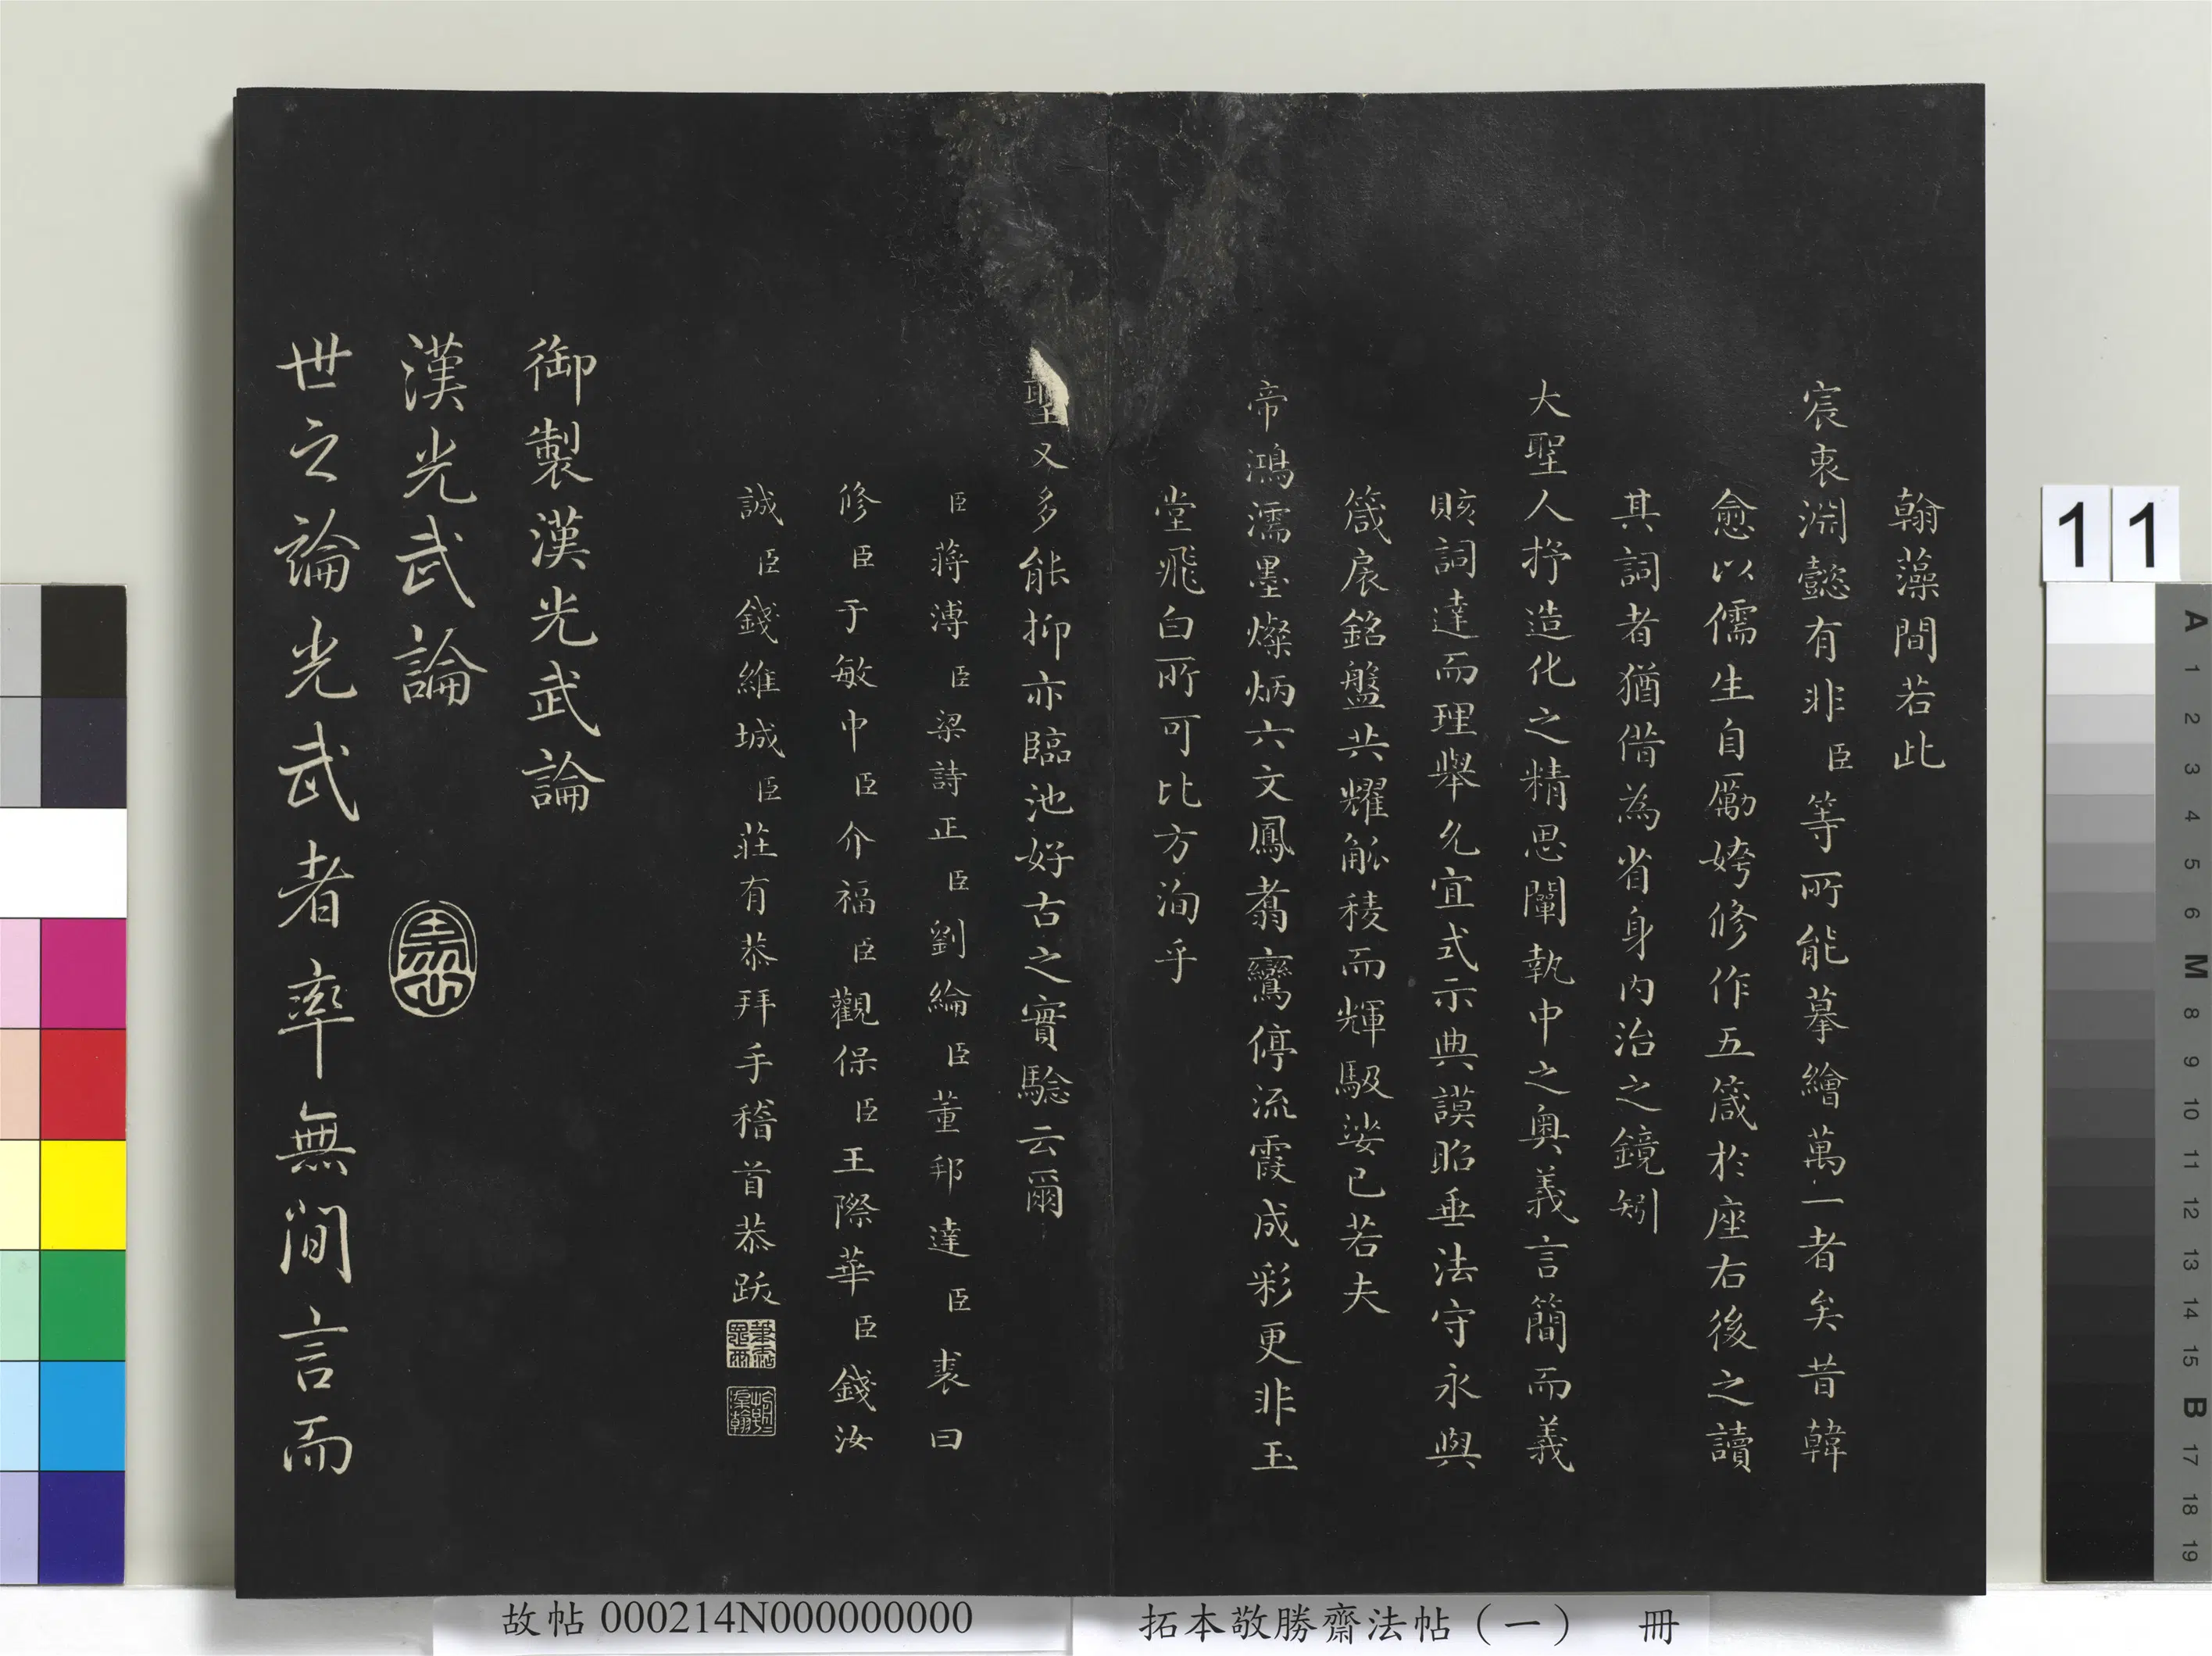 翰藻間若此
宸衷淵懿有非臣等所能摹繪萬一者矣昔韓
愈以儒生自勵姱修作五箴於座右後之讀
其詞者猶借為省身內治之鏡矧
大聖人抒造化之精思闡執中之奧義言簡而義
賅詞達而理舉允宜式示典謨昭垂法守永與
箴扆銘盤共耀觚稜而輝馺娑已若夫
帝鴻濡墨燦炳六文鳳翥鸞停流霞成彩更非玉
堂飛白所可比方洵乎
聖又多能抑亦臨池好古之實騐云爾
臣蔣溥臣梁詩正臣劉綸臣董邦達臣裘曰
修臣于敏中臣介福臣觀保臣王際華臣錢汝
誠臣錢維城臣莊有恭拜手稽首恭跋
御製漢光武論
漢光武論
世之論光武者率無間言而
11
A 1 2 3 4 5 6 M 8 9 10 11 12 13 14 15 B 17 18 19
故帖 000214N000000000
拓本敬勝齋法帖（一） 冊